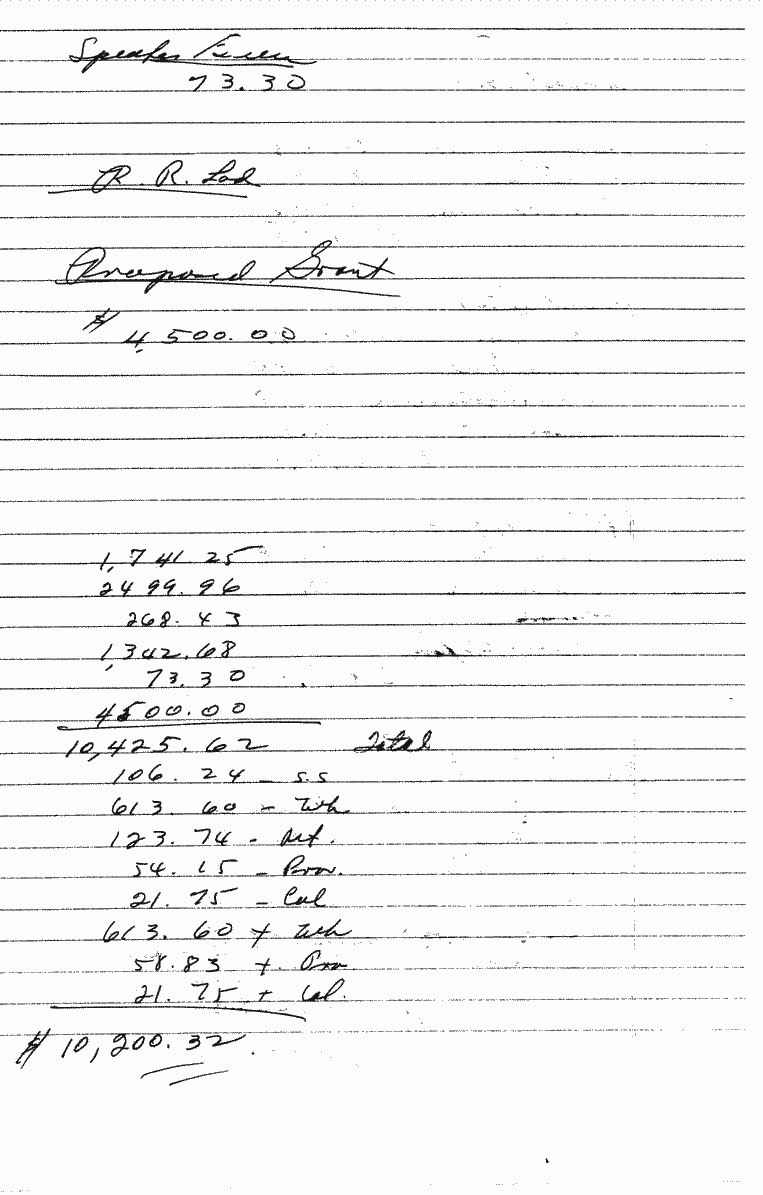 Speaker
73.30
R. R. Lad
Proposed Grant
$ 4,500.00
1,741.25
2499.96
268.43
1,342.68
73.30
4500.00
10,425.62 Total
106.24 - S.S
613.60 - Wh
123.74 - Ret.
54.15 - Prov.
21.75 - Cal
613.60 + Wh
58.83 + Prov
21.75 + Cal.
$ 10,200.32